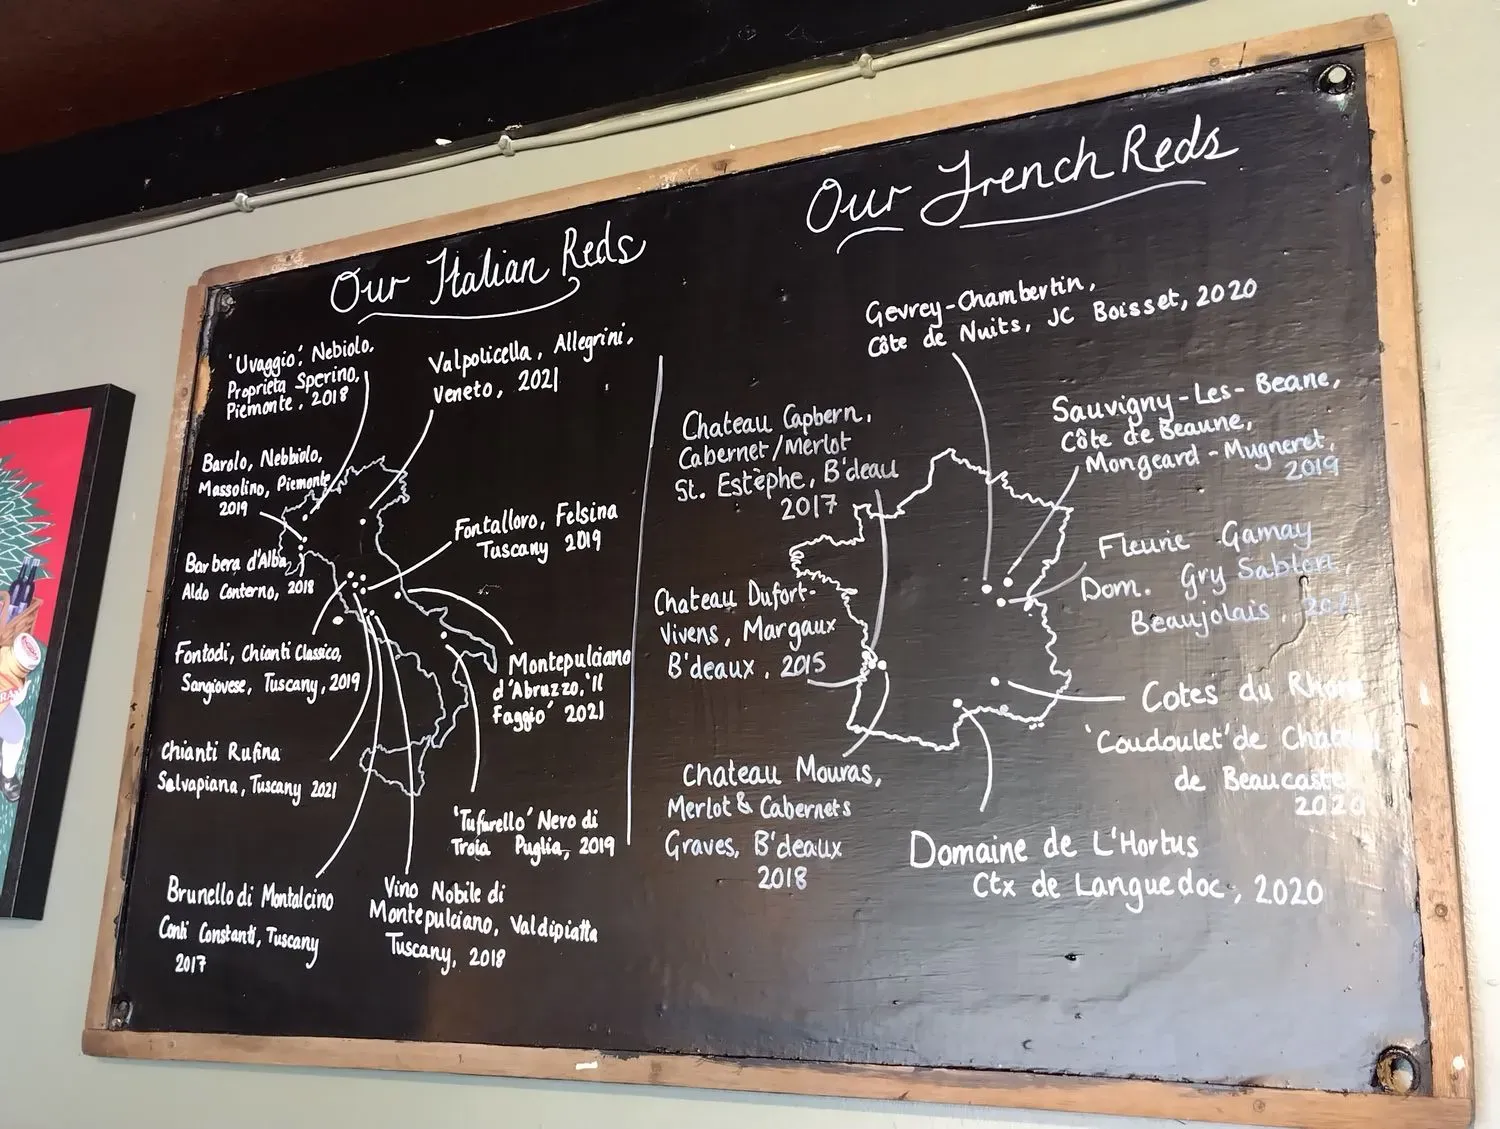 Our Italian Reds
'Uvaggio', Nebiolo,
Proprieta Sperino,
Piemonte, 2018
Valpolicella, Allegrini,
Veneto, 2021
Barolo, Nebbiolo,
Massolino, Piemonte
2019
Fontalloro, Felsina
Tuscany 2019
Barbera d'Alba,
Aldo Conterno, 2018
Fontodi, Chianti Classico,
Sangiovese, Tuscany, 2019
Montepulciano
d'Abruzzo, 'Il
Faggio' 2021
Chianti Rufina
Selvapiana, Tuscany 2021
'Tufarello' Nero di
Troia Puglia, 2019
Brunello di Montalcino
Conti Constanti, Tuscany
2017
Vino Nobile di
Montepulciano, Valdipiatta
Tuscany, 2018
Our French Reds
Gevrey-Chambertin,
Côte de Nuits, JC Boisset, 2020
Chateau Capbern,
Cabernet/Merlot
St. Estèphe, B'deau
2017
Sauvigny-Les-Beane,
Côte de Beaune,
Mongeard-Mugneret,
2019
Fleurie Gamay
Dom. Gry Sablon,
Beaujolais, 2021
Chateau Dufort-
Vivens, Margaux
B'deaux, 2015
Cotes du Rhone
'Coudoulet' de Chateau
de Beaucastel
2020
Chateau Mouras,
Merlot & Cabernets
Graves, B'deaux
2018
Domaine de L'Hortus
Ctx de Languedoc, 2020